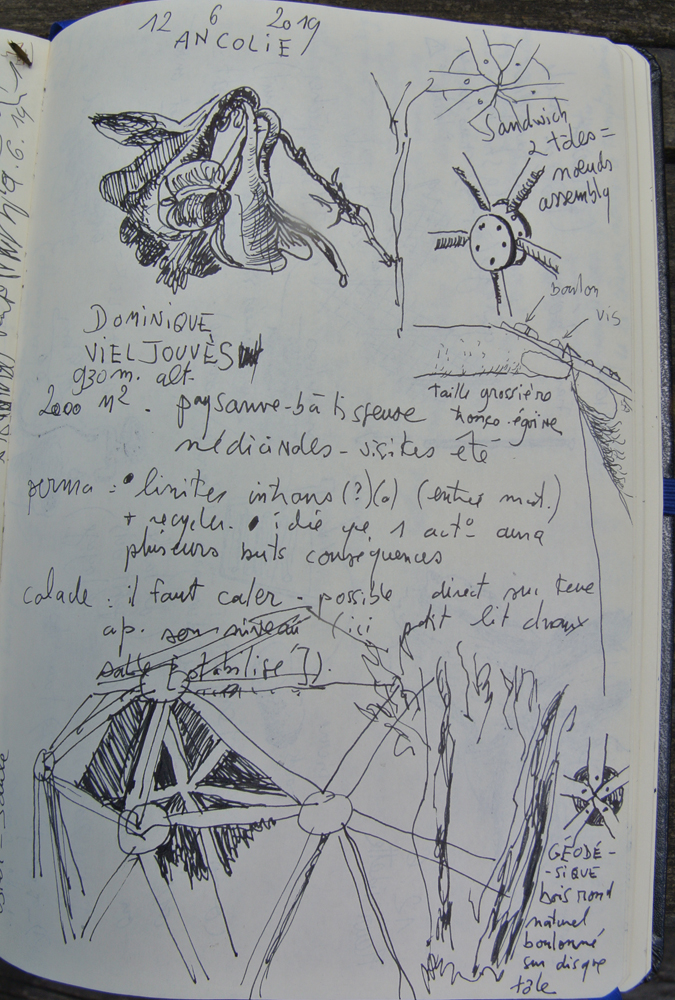 12 6 2019
ANCOLIE
Sandwich
2 tôles =
nœuds
assembly
boulon
vis
taille grossière
égoïne
DOMINIQUE
VIELJOUVÈS
930 m. alt.
2000 m². paysanne-bâtisseuse
médicindes - visites été
perma : • limites intrans (?)(o) (entrée mat.)
+ recycler. • idée qe 1 act° aura
plusieurs buts conséquences
calade : il faut caler - possible direct sur terre
ap. son niveau (ici petit lit
sable [stabilisé]).
GÉODÉ-
-SIQUE
bois rond
naturel
boulonné
sur disque
tôle